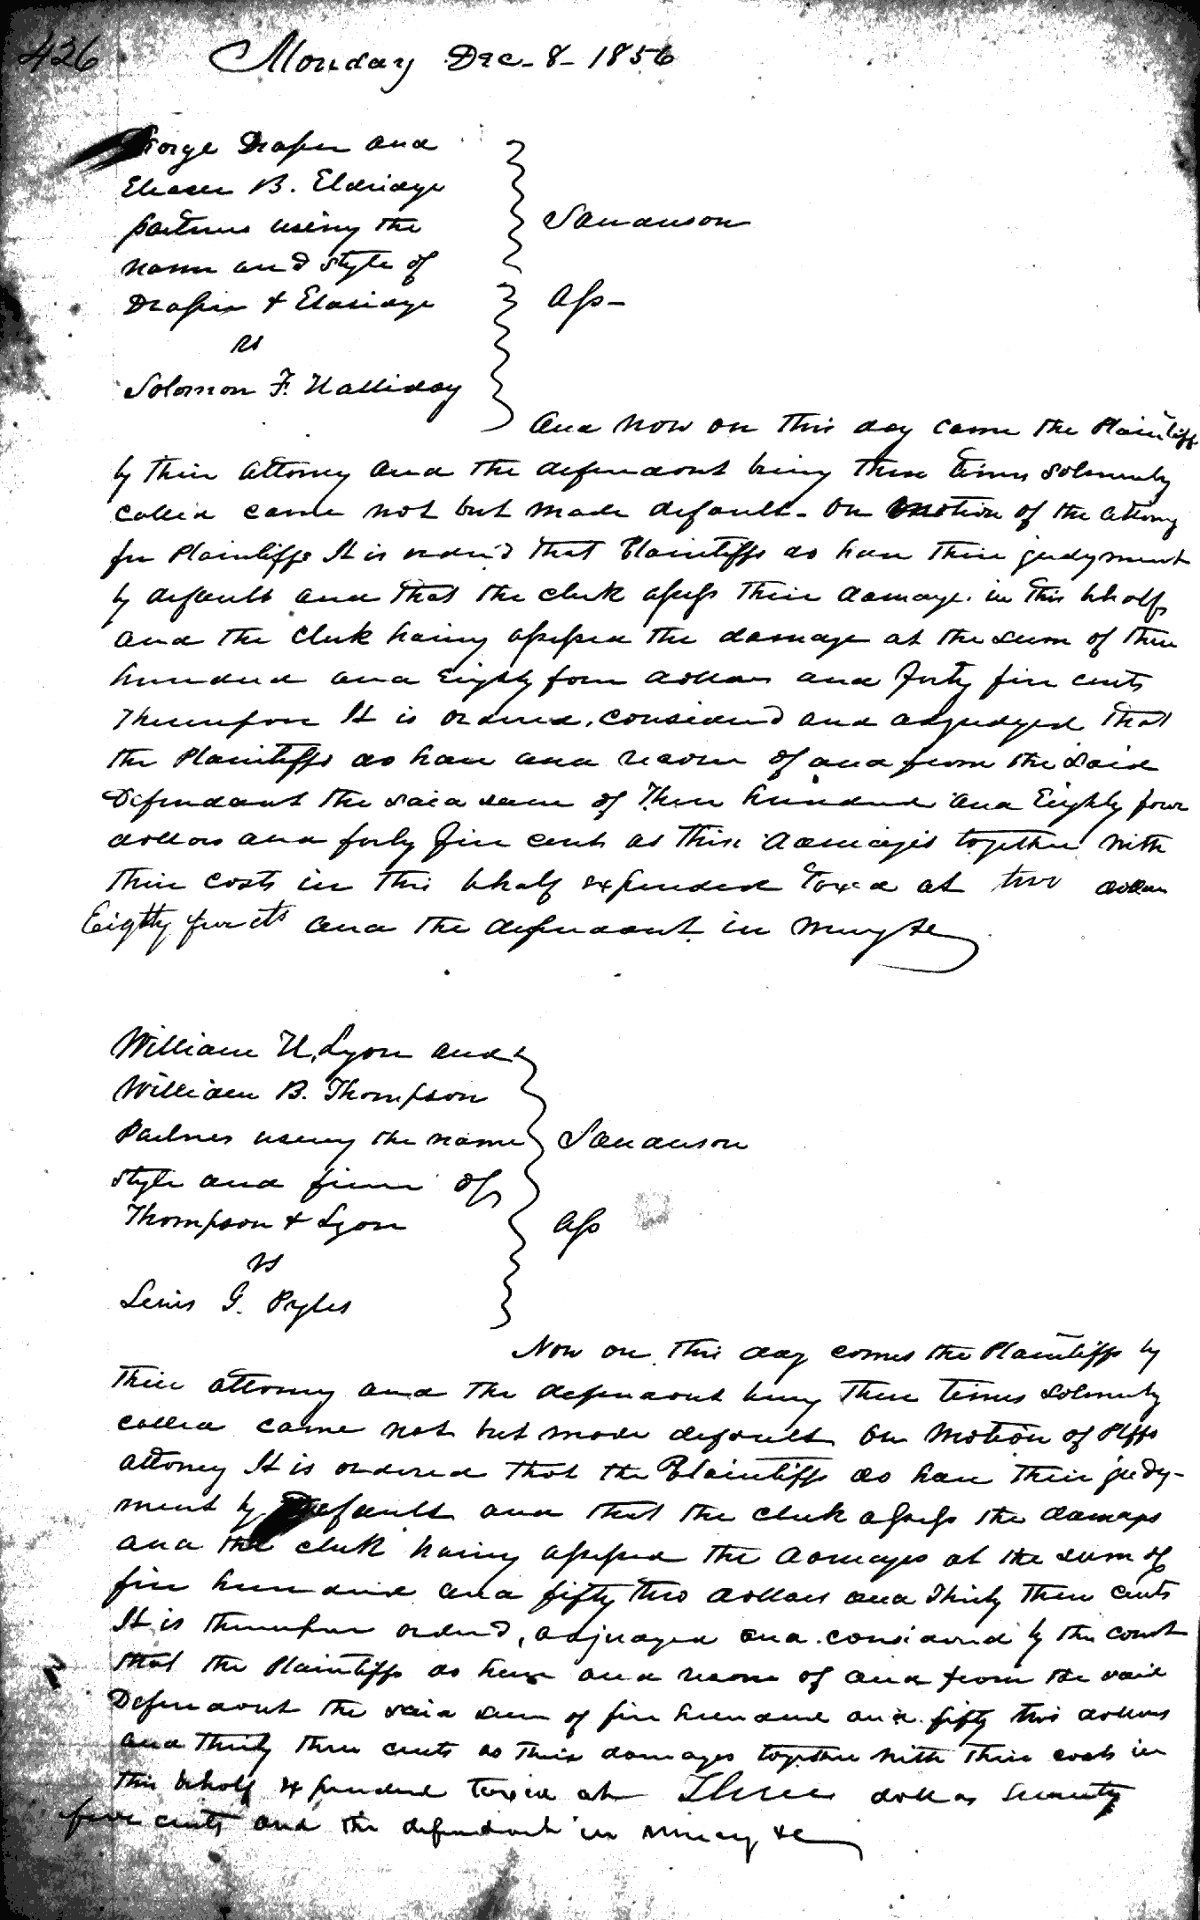 426 Monday Dec. 8 - 1856
George Draper and
Eleaser B. Eldridge
partners using the
name and style of
Draper & Eldridge
vs
Solomon F. Halliday
Sauauson
Ass -
And now on this day came the Plaintiff
by their attorney and the defendant being three times solemnly
called came not but made default - On Motion of the attorney
for Plaintiffs It is order'd that Plaintiffs do have their judgment
by default and that the clerk assess their damage in this behalf
and the Clerk having assessed the damage at the sum of three
hundred and Eighty four dollars and forty five cents
Therefore It is ordered, considered and adjudged that
the Plaintiffs do have and recover of and from the said
Defendant the said sum of Three hundred and Eighty four
dollars and forty five cents as their damages together with
their costs in this behalf expended Taxed at two dollars
Eighty five cts and the defendant in mercy &c
William H. Lyon and
William B. Thompson
Partners using the name
style and firm of
Thompson & Lyon
vs
Lewis G. Pyles
Sauauson
Ass
Now on this day comes the Plaintiffs by
their attorney and the defendant being three times solemnly
called came not but made default On Motion of Plffs
attorney It is ordered that the Plaintiffs do have their judg-
ment by Default and that the clerk assess the damages
and the clerk having assessed the damages at the sum of
five hundred and fifty two dollars and Thirty Three cents
It is therefore order'd, adjudged and considered by the court
that the Plaintiffs do have and recover of and from the said
Defendant the said sum of five hundred and fifty two dollars
and thirty three cents as their damages together with their costs in
this behalf expended taxed at Three dollars Seventy
five cents and the defendant in mercy &c